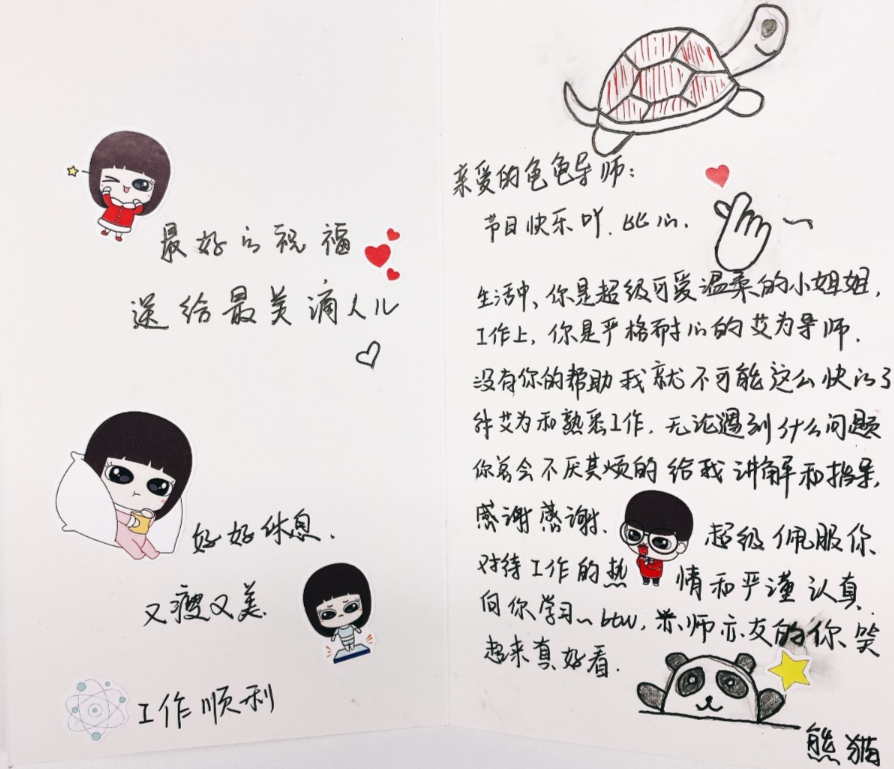 最好的祝福
送给最美滴人儿
好好休息.
又瘦又美
工作顺利
亲爱的龟龟导师:
节日快乐吖.比心.
生活中,你是超级可爱温柔的小姐姐,
工作上,你是严格耐心的艾为导师.
没有你的帮助我就不可能这么快的了
解艾为和熟悉工作.无论遇到什么问题
你总会不厌其烦的给我讲解和指导,
感谢感谢.超级佩服你
对待工作的热情和严谨认真.
向你学习~btw,亦师亦友的你笑
起来真好看.
熊猫